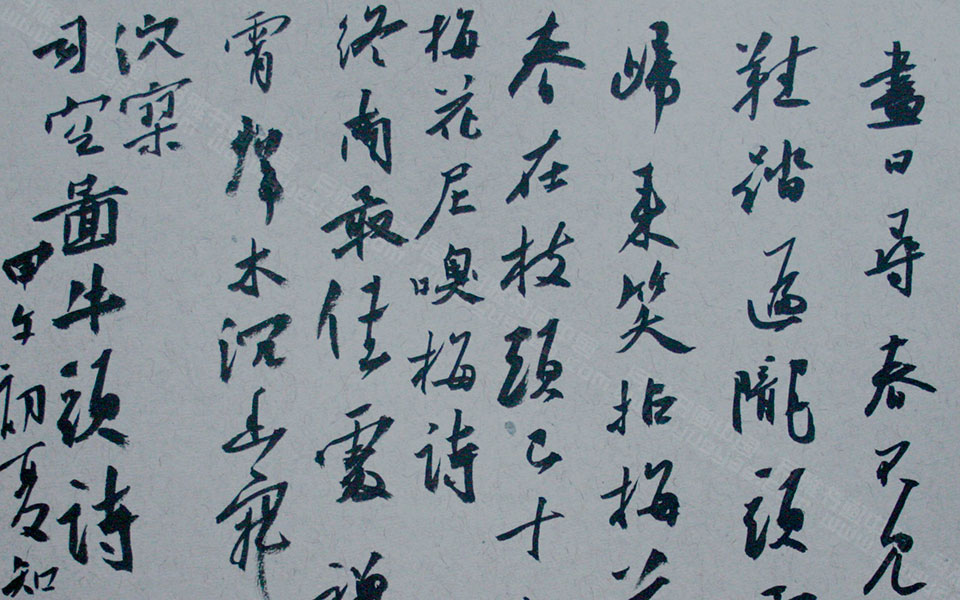 晝日尋春不見
鞋踏遍隴頭
歸來笑拈梅花
春在枝頭已十
梅花尼嗅梅詩
終南最佳處禪
霄群木沉幽寂
泬寥
司空圖牛頭詩
甲午初夏知